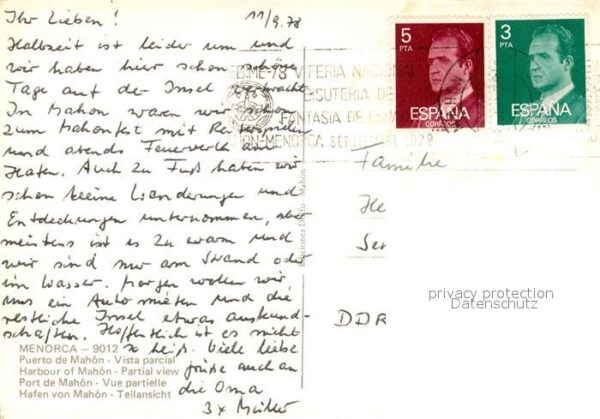 Ihr Lieben! 11/9.78
Halbzeit ist leider um und
wir haben hier schon schöne
Tage auf der Insel verbracht
In Mahon waren wir schon
zum Mahonfest mit Reiterspielen
und abends Feuerwerk am
Hafen. Auch zu Fuß haben wir
schon kleine Wanderungen und
Entdeckungen unternommen, aber
meistens ist es zu warm und
wir sind nur am Strand oder
im Wasser. Morgen wollen wir
uns ein Auto mieten und die
restliche Insel etwas auskund-
schaften. Hoffentlich ist es nicht
so heiß. Viele liebe
Grüße auch an
die Oma
3x Müller
MENORCA - 9012
Puerto de Mahón - Vista parcial
Harbour of Mahón - Partial view
Port de Mahón - Vue partielle
Hafen von Mahón - Teilansicht
Mahón
EBIME-78 V FERIA NACIONAL
BISUTERIA DE
FANTASIA DE
MENORCA SEPTIEMBRE 1978
5
PTA
ESPAÑA
CORREOS
3
PTA
ESPAÑA
CORREOS
Familie
He
Ser
DDR
privacy protection
Datenschutz